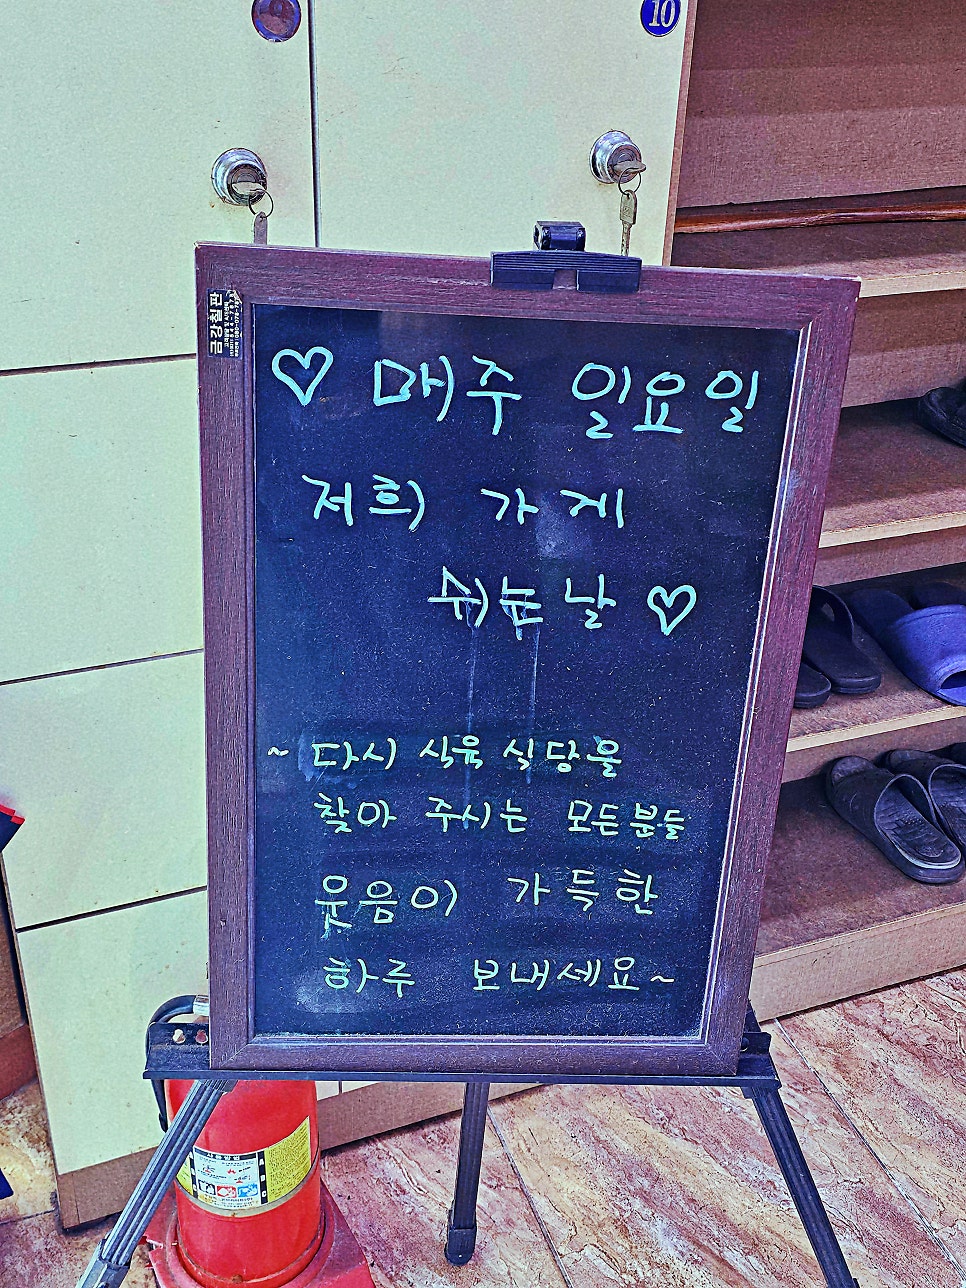 10
♡ 매주 일요일
저희 가게
쉬는날 ♡
~ 다시 식육 식당을
찾아 주시는 모든분들
웃음이 가득한
하루 보내세요~